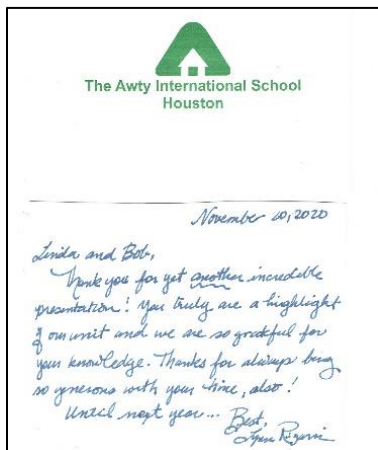 The Awty International School
Houston
November 10, 2020
Linda and Bob,
Thank you for yet another incredible
presentation! You truly are a highlight
of our unit and we are so grateful for
your knowledge. Thanks for always being
so generous with your time, also!
Until next year... Best,
Lynn